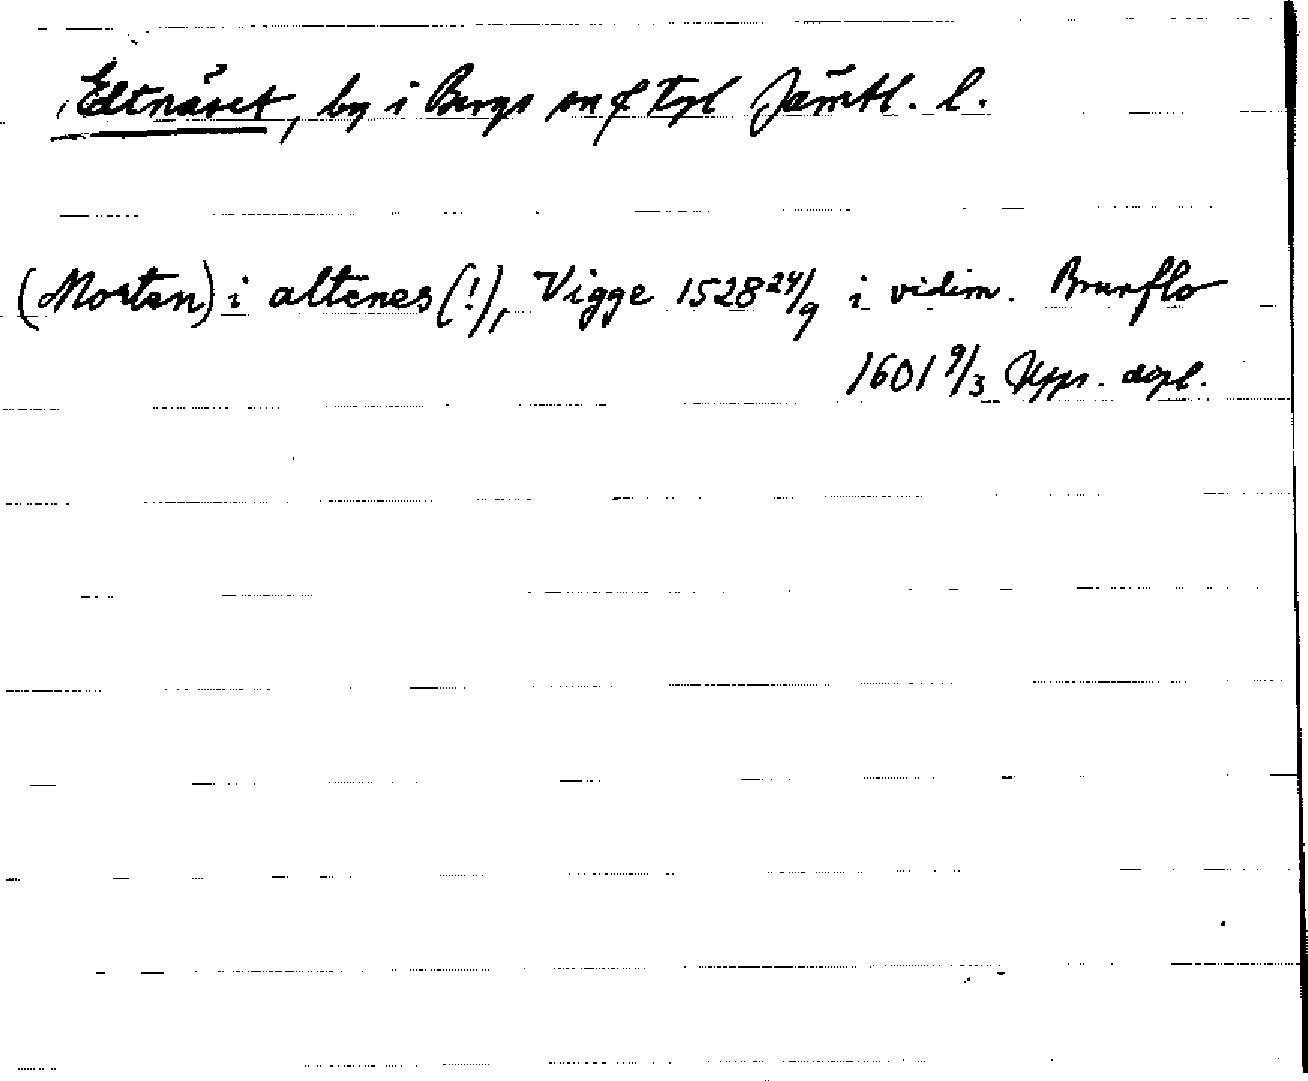 Eltnäset, by i Bergs sn o Tgl Jämtl. l.
(Morten) i altenes (!), Vigge 1528 24/9 i vidim. Brunflo
1601 9/3 Upps. dopl.